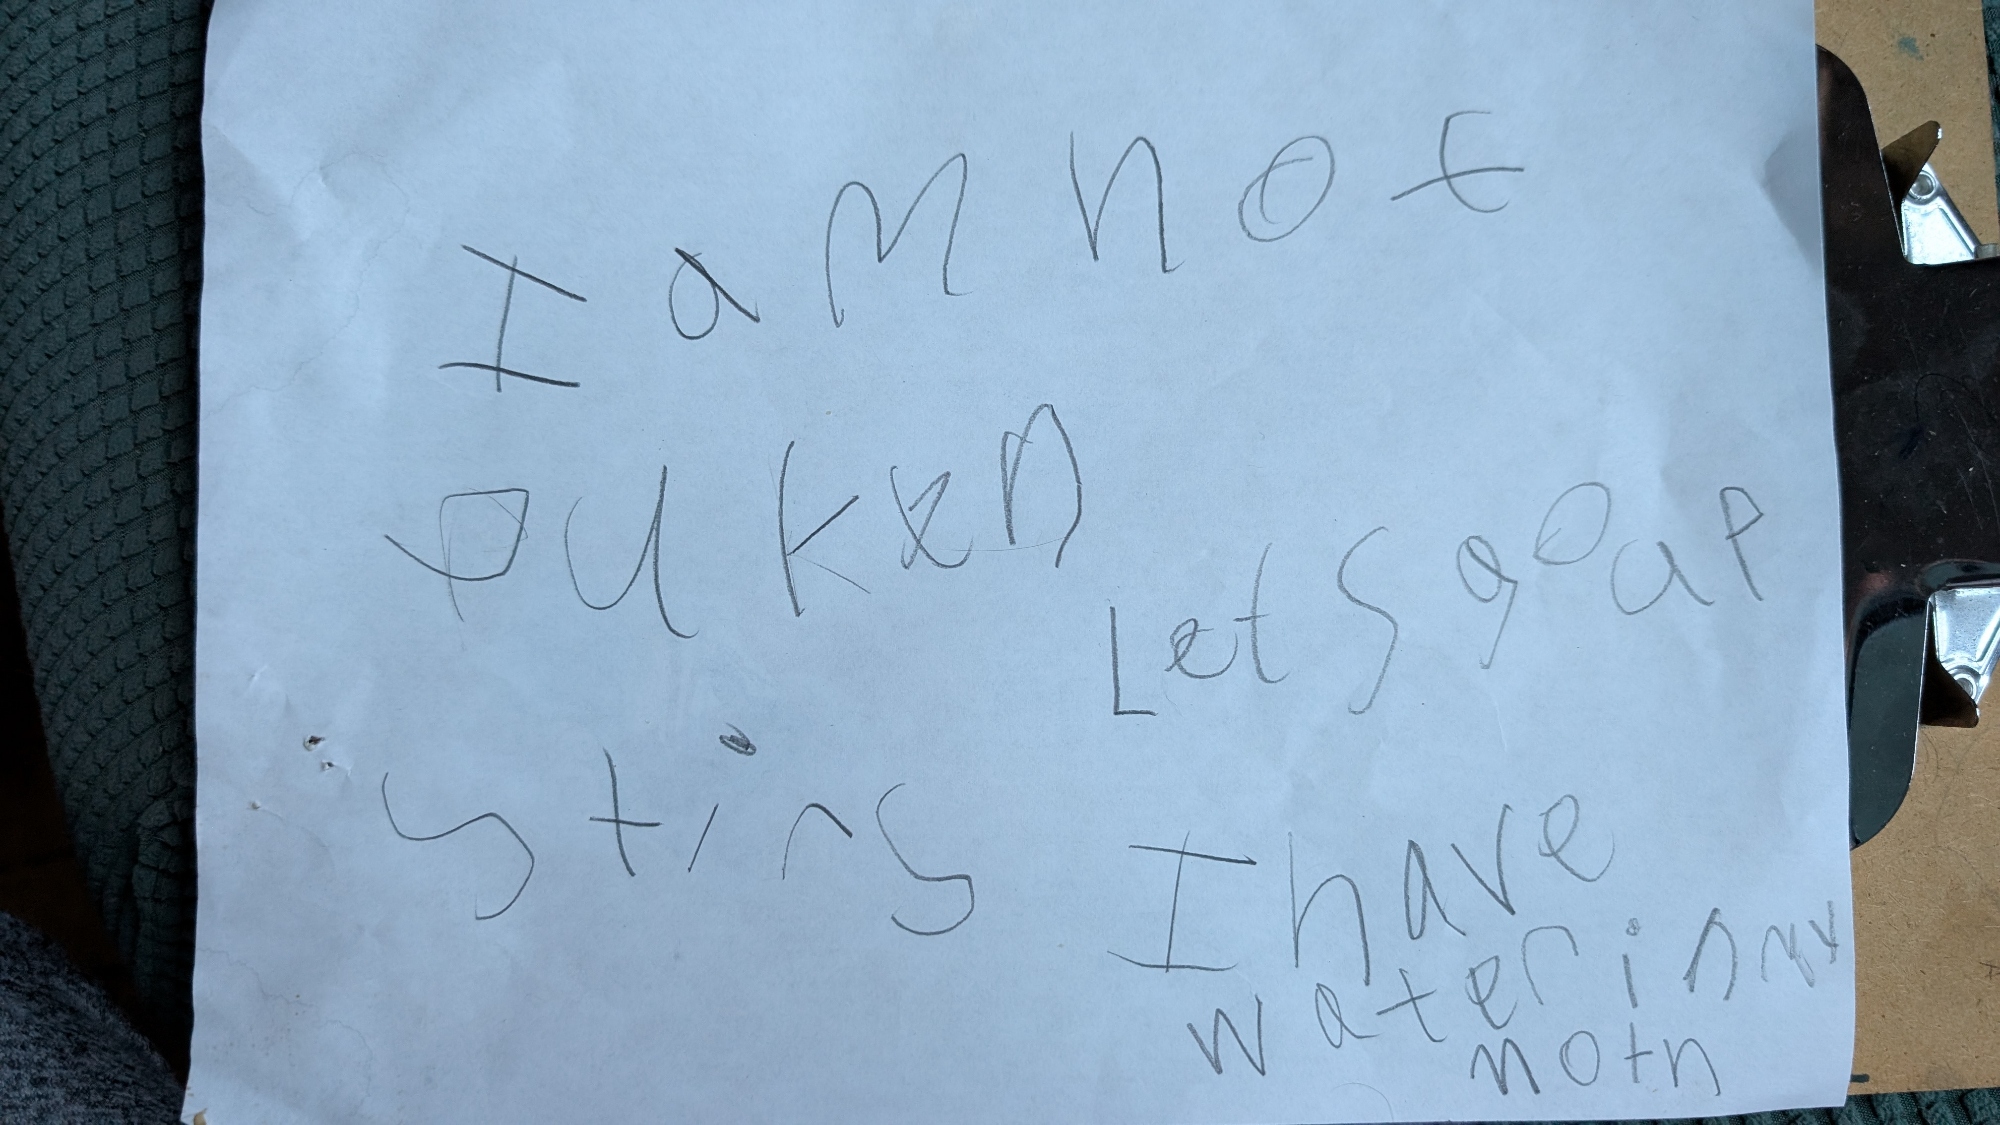 I am not
Lets go up
stirs
I have
water in my
moth